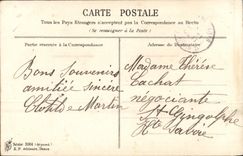 CARTE POSTALE
Tous les Pays Etrangers n'acceptent pas la Correspondance au Recto
(Se renseigner à la Poste)
Partie réservée à la Correspondance
Adresse du Destinataire
Bons Souvenirs
amitié sincère
Clotilde Martin
Madame Thérèse
Cachat
négociante
St Gingolphe
Hte Savoie